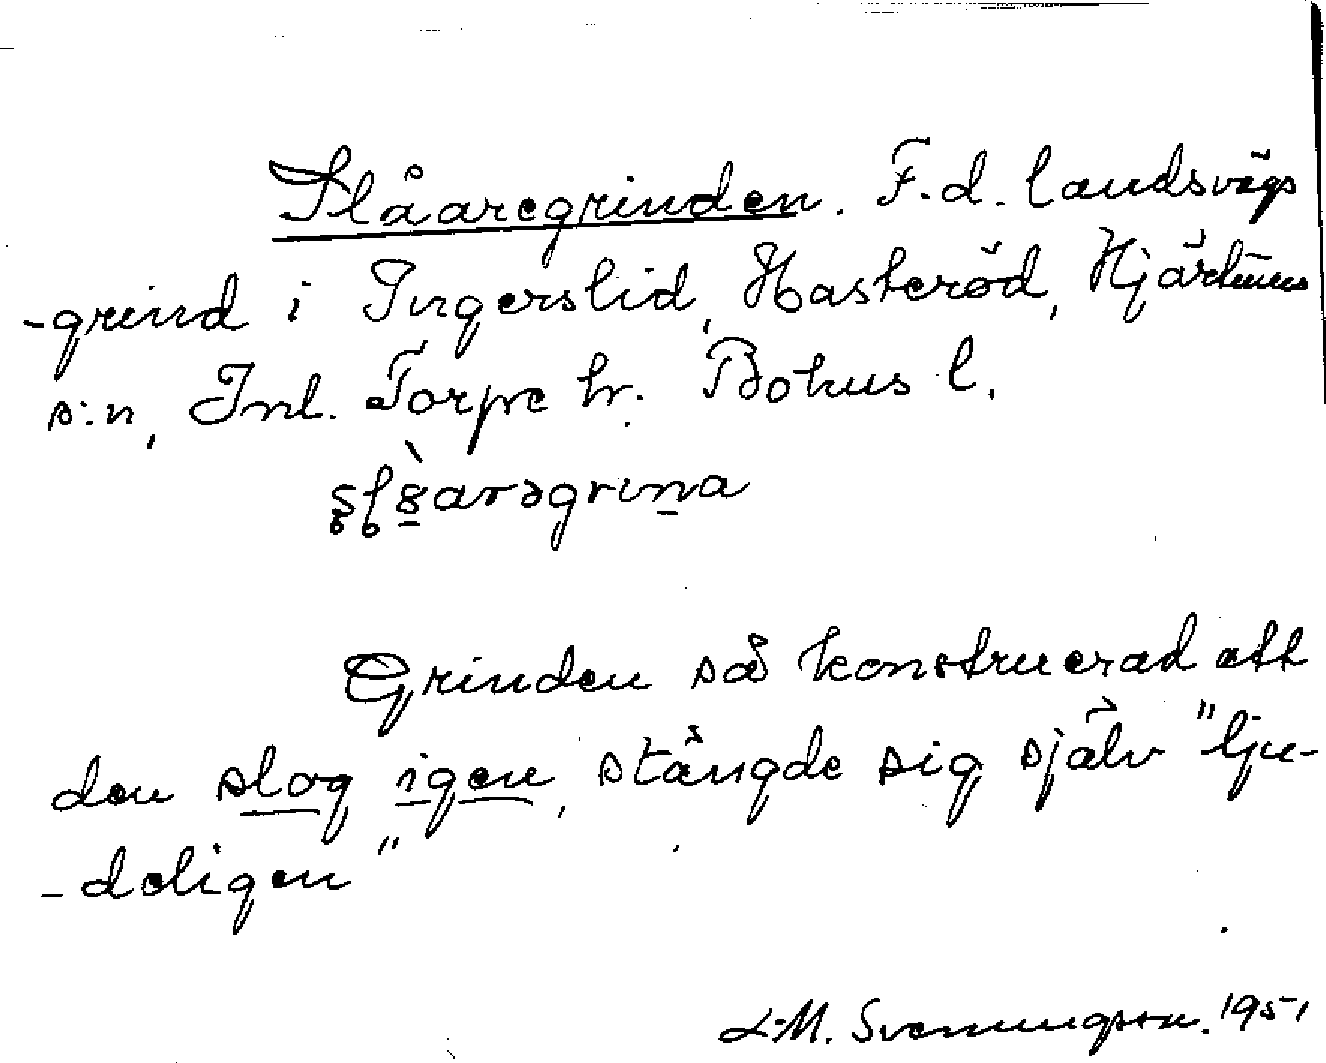 Slåaregrinden. F.d. landsvägs
-grind i Ingerslid, Hasteröd, Hjärtums
s:n, Inl. Torpe hr. Bohus l.
Grinden så konstruerad att
den slog igen, stängde sig själv "lju-
-deligen"
L-M. Svenungsson. 1951